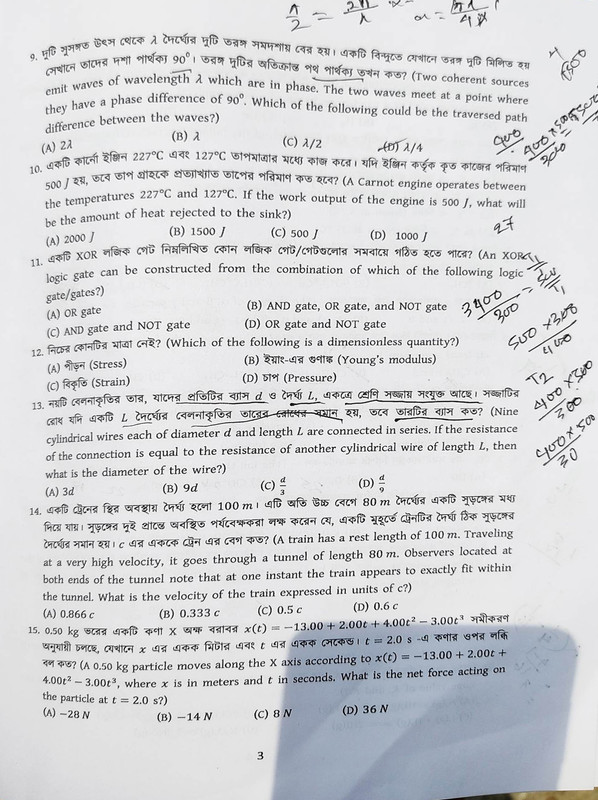 9. দুটি সুসঙ্গত উৎস থেকে λ দৈর্ঘ্যের দুটি তরঙ্গ সমদশায় বের হয়। একটি বিন্দুতে যেখানে তরঙ্গ দুটি মিলিত হয়
সেখানে তাদের দশা পার্থক্য 90°। তরঙ্গ দুটির অতিক্রান্ত পথ পার্থক্য তখন কত? (Two coherent sources
emit waves of wavelength λ which are in phase. The two waves meet at a point where
they have a phase difference of 90°. Which of the following could be the traversed path
difference between the waves?)
(A) 2λ (B) λ (C) λ/2 (D) λ/4
10. একটি কার্নো ইঞ্জিন 227°C এবং 127°C তাপমাত্রার মধ্যে কাজ করে। যদি ইঞ্জিন কর্তৃক কৃত কাজের পরিমাণ
500 J হয়, তবে তাপ গ্রাহকে প্রত্যাখ্যাত তাপের পরিমাণ কত হবে? (A Carnot engine operates between
the temperatures 227°C and 127°C. If the work output of the engine is 500 J, what will
be the amount of heat rejected to the sink?)
(A) 2000 J (B) 1500 J (C) 500 J (D) 1000 J
11. একটি XOR লজিক গেট নিম্নলিখিত কোন লজিক গেট/গেটগুলোর সমবায়ে গঠিত হতে পারে? (An XOR
logic gate can be constructed from the combination of which of the following logic
gate/gates?)
(A) OR gate (B) AND gate, OR gate, and NOT gate
(C) AND gate and NOT gate (D) OR gate and NOT gate
12. নিচের কোনটির মাত্রা নেই? (Which of the following is a dimensionless quantity?)
(A) পীড়ন (Stress) (B) ইয়াং-এর গুণাঙ্ক (Young's modulus)
(C) বিকৃতি (Strain) (D) চাপ (Pressure)
13. নয়টি বেলনাকৃতির তার, যাদের প্রতিটির ব্যাস d ও দৈর্ঘ্য L, একত্রে শ্রেণি সজ্জায় সংযুক্ত আছে। সজ্জাটির
রোধ যদি একটি L দৈর্ঘ্যের বেলনাকৃতির তারের রোধের সমান হয়, তবে তারটির ব্যাস কত? (Nine
cylindrical wires each of diameter d and length L are connected in series. If the resistance
of the connection is equal to the resistance of another cylindrical wire of length L, then
what is the diameter of the wire?)
(A) 3d (B) 9d (C) d/3 (D) d/9
14. একটি ট্রেনের স্থির অবস্থায় দৈর্ঘ্য হলো 100 m। এটি অতি উচ্চ বেগে 80 m দৈর্ঘ্যের একটি সুড়ঙ্গের মধ্য
দিয়ে যায়। সুড়ঙ্গের দুই প্রান্তে অবস্থিত পর্যবেক্ষকরা লক্ষ করেন যে, একটি মুহূর্তে ট্রেনটির দৈর্ঘ্য ঠিক সুড়ঙ্গের
দৈর্ঘ্যের সমান হয়। c এর এককে ট্রেন এর বেগ কত? (A train has a rest length of 100 m. Traveling
at a very high velocity, it goes through a tunnel of length 80 m. Observers located at
both ends of the tunnel note that at one instant the train appears to exactly fit within
the tunnel. What is the velocity of the train expressed in units of c?)
(A) 0.866 c (B) 0.333 c (C) 0.5 c (D) 0.6 c
15. 0.50 kg ভরের একটি কণা X অক্ষ বরাবর x(t) = −13.00 + 2.00t + 4.00t² − 3.00t³ সমীকরণ
অনুযায়ী চলছে, যেখানে x এর একক মিটার এবং t এর একক সেকেন্ড। t = 2.0 s -এ কণার ওপর লব্ধি
বল কত? (A 0.50 kg particle moves along the X axis according to x(t) = −13.00 + 2.00t +
4.00t² − 3.00t³, where x is in meters and t in seconds. What is the net force acting on
the particle at t = 2.0 s?)
(A) −28 N (B) −14 N (C) 8 N (D) 36 N
3
27
500 × 300
400
400 × 300
300
400 × 500
30